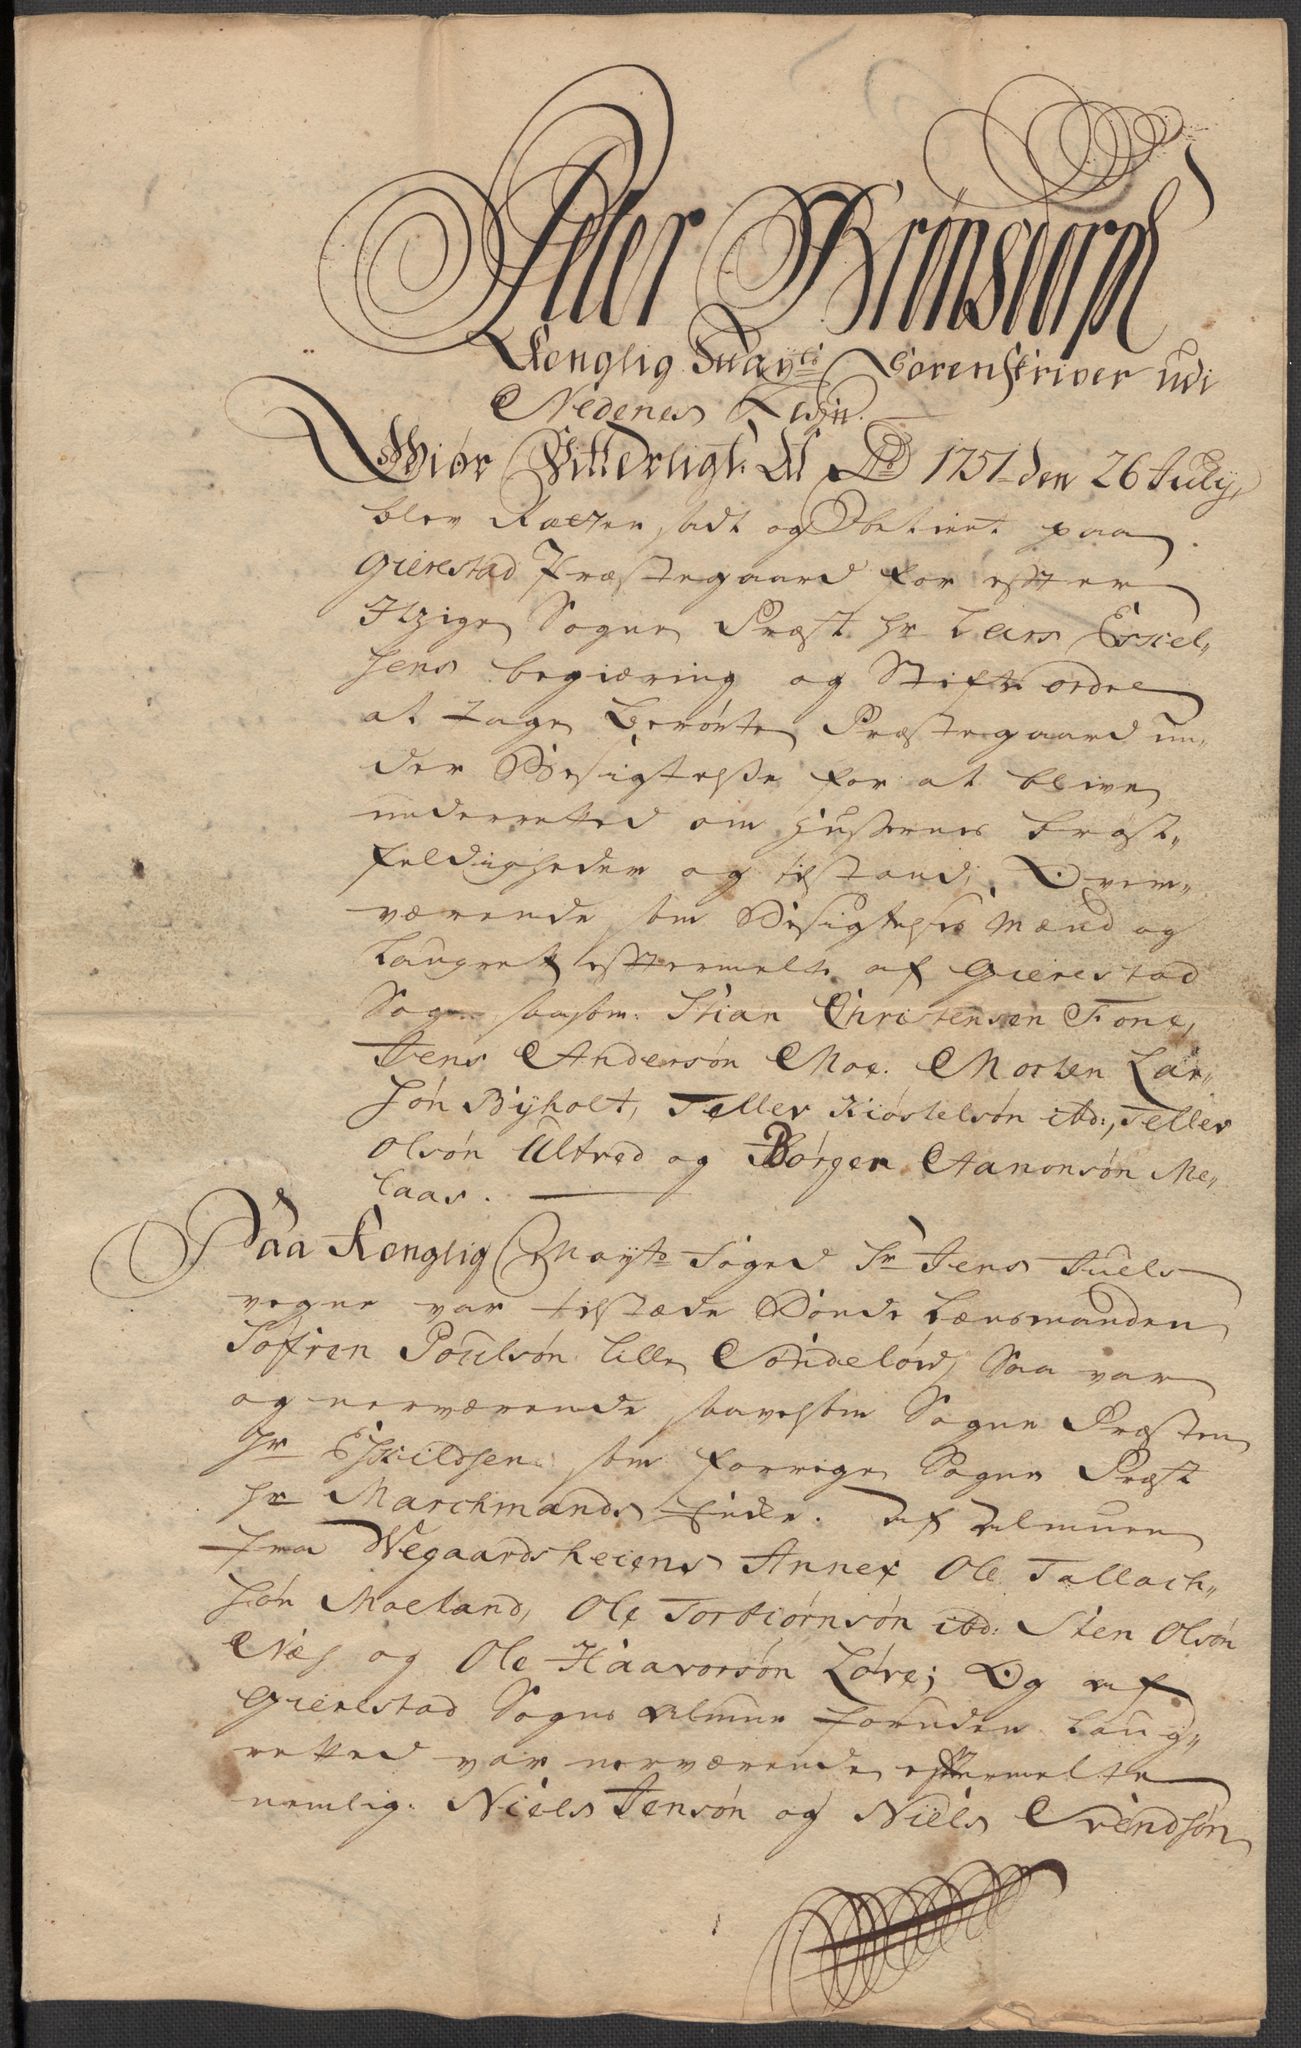 Peter Brønsdorph
Kongelig Mayts Sorenskriver udi
Nedenes Lehn.
Giør Vitterligt: At Ao 1751 den 26 July,
blev Retten sadt og betient paa
Gierestad Præstegaard for efter
Itzige Sogne Præst hr Lars Eskel„
sens begiæring og Stifts ordre
at tage berørte Præstegaard un„
der Besigtelse for at blive
underretted om Husernes brøst„
feldigheder og tilstand, Over„
værende som Besigtelses Mænd og
Laugrett eftermelte af Gierestad
Sogn saasom: Stian Christensen Fone,
Jens Andersøn Moe. Morten Lar„
søn Byholt, Tellev Kiøstelsøn ibd:, Tellev
Olsøn Ultved og Børgen Aanonsøn Me„
laas.
Paa Konglig Mayts Foged Sr Jens Juels
vegne var tilstæde Bonde Lænsmanden
Søfren Poulsøn lille Søndeløv, Saa var
og nerværende saavelsom Sogne Præsten
hr Eskildsen som forrige Sogne Præst
hr Marchmands Enke. Af Almuen
fra Wegaardsheiens Annex Ole Tallach„
søn Moeland, Ole Torbiørnsøn ibd: Sten Olsøn
Næs og Ole Haavorsøn Løve; Og af
Gierestad Sogns Almue foruden Laug„
retted var nerværende eftermelte
nemlig: Niels Jensøn og Niels Svendsøn